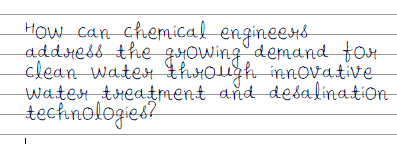 How can chemical engineers
address the growing demand for
clean water through innovative
water treatment and desalination
technologies?